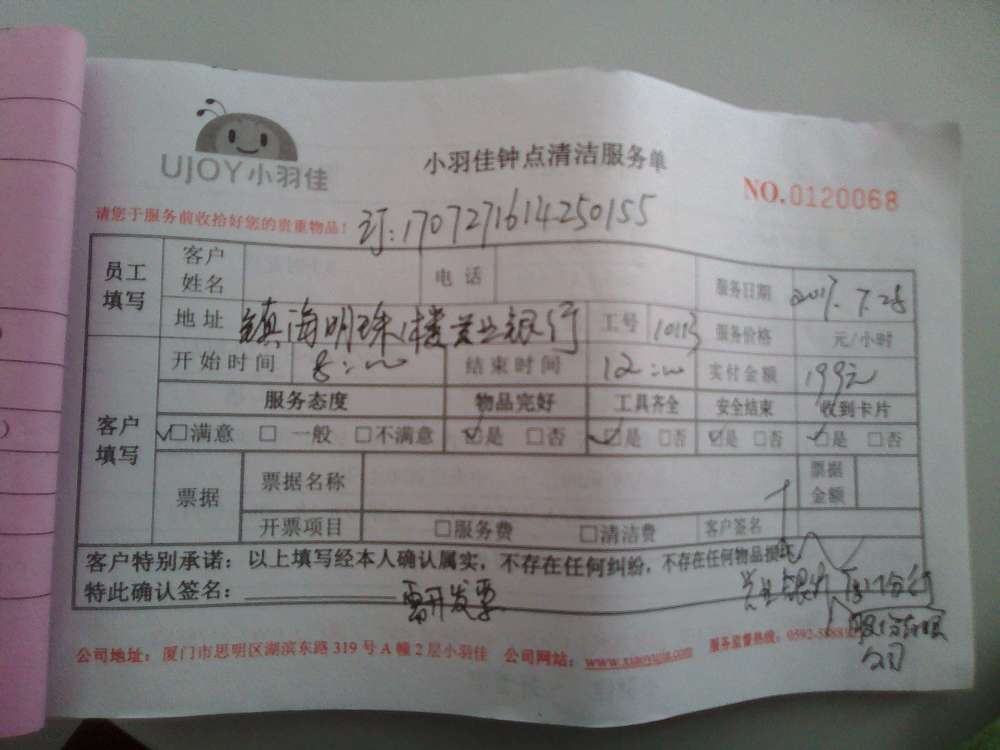 UJOY小羽佳
小羽佳钟点清洁服务单
NO.0120068
请您于服务前收拾好您的贵重物品!
订:1707271614250155
员工填写 客户姓名 电话 服务日期 2017.7.28
地址 镇海明珠1楼兴业银行 工号 服务价格 元/小时
客户填写 开始时间 8:00 结束时间 12:00 实付金额 199元
服务态度 物品完好 工具齐全 安全结束 收到卡片
☑满意 □一般 □不满意 ☑是 □否 ☑是 □否 ☑是 □否 ☑是 □否
票据 票据名称 票据金额
开票项目 □服务费 □清洁费 客户签名
客户特别承诺:以上填写经本人确认属实,不存在任何纠纷,不存在任何物品损坏
特此确认签名: 需开发票
兴业银行 厦门分行
公司
公司地址:厦门市思明区湖滨东路319号A幢2层小羽佳 公司网站:www.xiaoyujia.com 服务监督热线:0592-